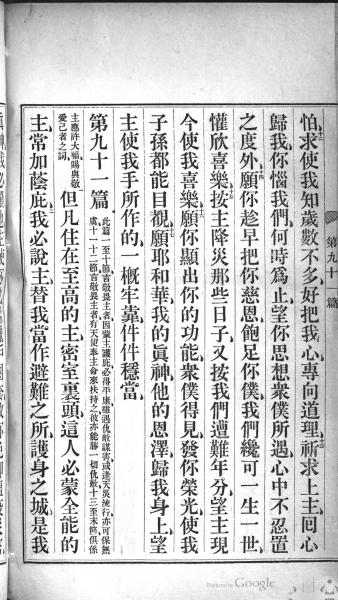 怕求使我知歲數不多好把我心專向道理祈求上主回心
歸我你惱我們何時爲止望你思想衆僕所遇心中不忍置
之度外願你趁早把你慈恩飽足你僕我們纔可一生一世
懽欣喜樂按主降災那些日子又按我們遭難年分望主現
今使我喜樂願你顯出你的功能衆僕得見發你榮光使我
子孫都能目覩願耶和華我的眞神他的恩澤歸我身上望
主使我手所作的一概牢靠件件穩當
第九十一篇 此篇一至十節言敬畏主者因蒙主護庇必得平康雖遇仇敵謀害或逢天災流行亦可保無
虞十一十二節言敬畏主者有天使奉主命來扶持之彼亦能勝一切仇敵十三至末節俱係
主應許大福賜與敬
愛己者之詞 但凡住在至高的主密室裏頭這人必蒙全能的
主常加蔭庇我必說主替我當作避難之所護身之城是我
第九十一篇
Digitized by Google